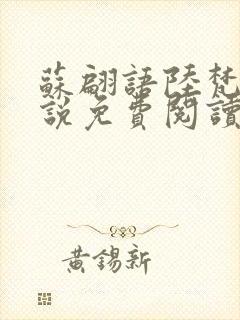 蘇翩語陸梵
說免費閱讀
黃錫新